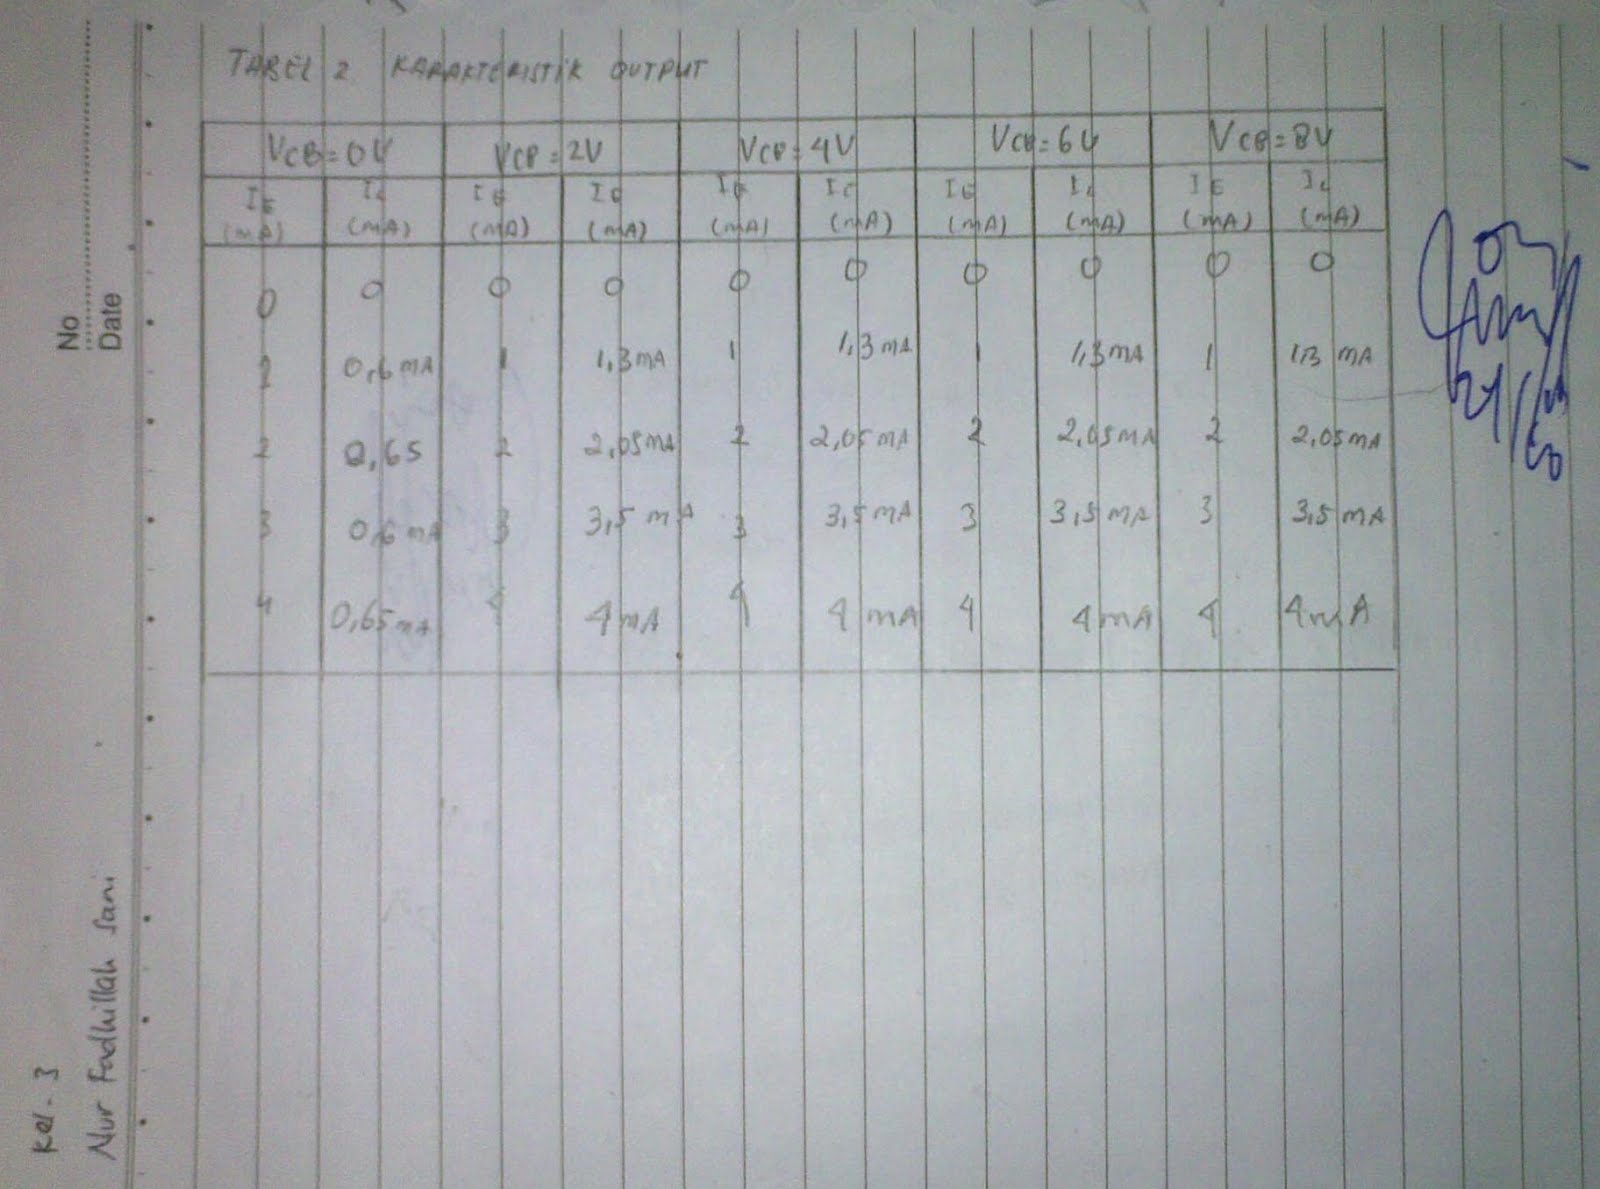 TABEL 2 KARAKTERISTIK OUTPUT
VCB=0V VCB=2V VCB=4V VCB=6V VCB=8V
IE IC IE IC IE IC IE IC IE IC
(mA) (mA) (mA) (mA) (mA) (mA) (mA) (mA) (mA) (mA)
0 0 0 0 0 0 0 0 0 0
0,6 mA 1 1,3 mA 1 1,3 mA 1 1,3 mA 1 1,3 mA
2 0,65 2 2,05 mA 2 2,05 mA 2 2,05 mA 2 2,05 mA
3 0,6 mA 3 3,5 mA 3 3,5 mA 3 3,5 mA 3 3,5 mA
4 0,65 mA 4 4 mA 4 4 mA 4 4 mA 4 4 mA
No
Date
Kel. 3
Nur Fadhillah Sani